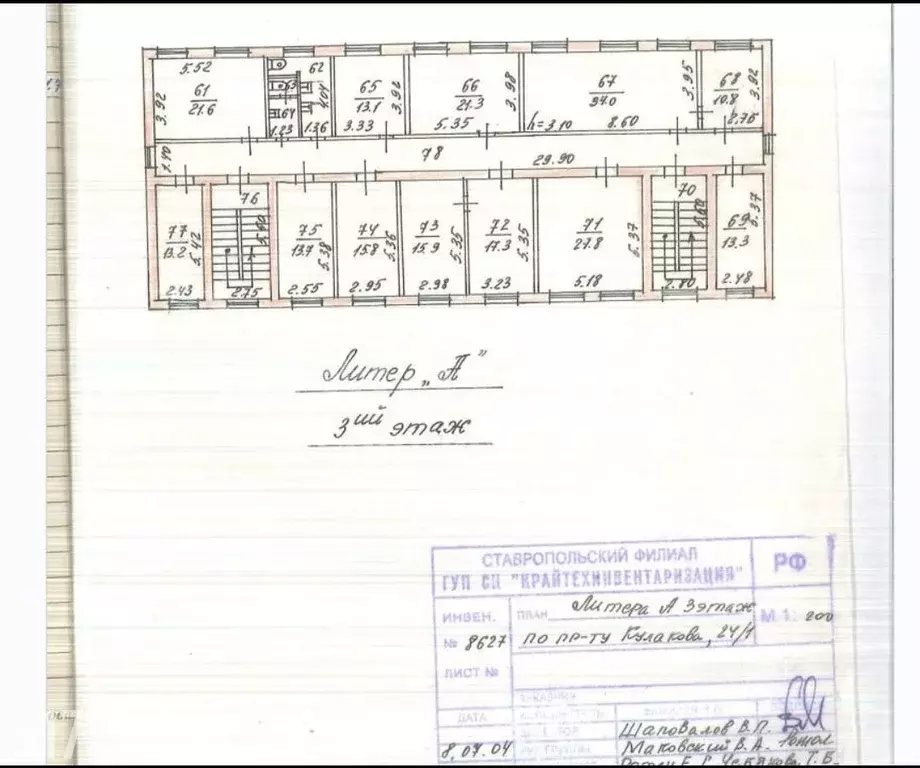 5.52
61
21.6
3.92
62
63
64
1.23
1.36
4.04
65
13.1
3.92
3.33
66
21.3
3.98
5.35
67
34.0
3.95
h=3.10
8.60
68
10.8
3.92
2.76
1.90
78
29.90
77
13.2
5.42
2.43
76
2.75
75
13.7
5.38
2.55
74
15.8
5.36
2.95
73
15.9
5.35
2.98
72
17.3
5.35
3.23
71
27.8
5.37
5.18
70
2.80
69
13.3
5.37
2.48
Литер „А"
3ий этаж
СТАВРОПОЛЬСКИЙ ФИЛИАЛ
ГУП СК "КРАЙТЕХИНВЕНТАРИЗАЦИЯ"
РФ
ИНВЕН.
№ 8627
ПЛАН Литера А 3 этаж
М 1: 200
по пр-ту Кулакова, 24/1
ЛИСТ №
ДАТА
8.07.04
Шаповалов В.П.
Маковский В.А.